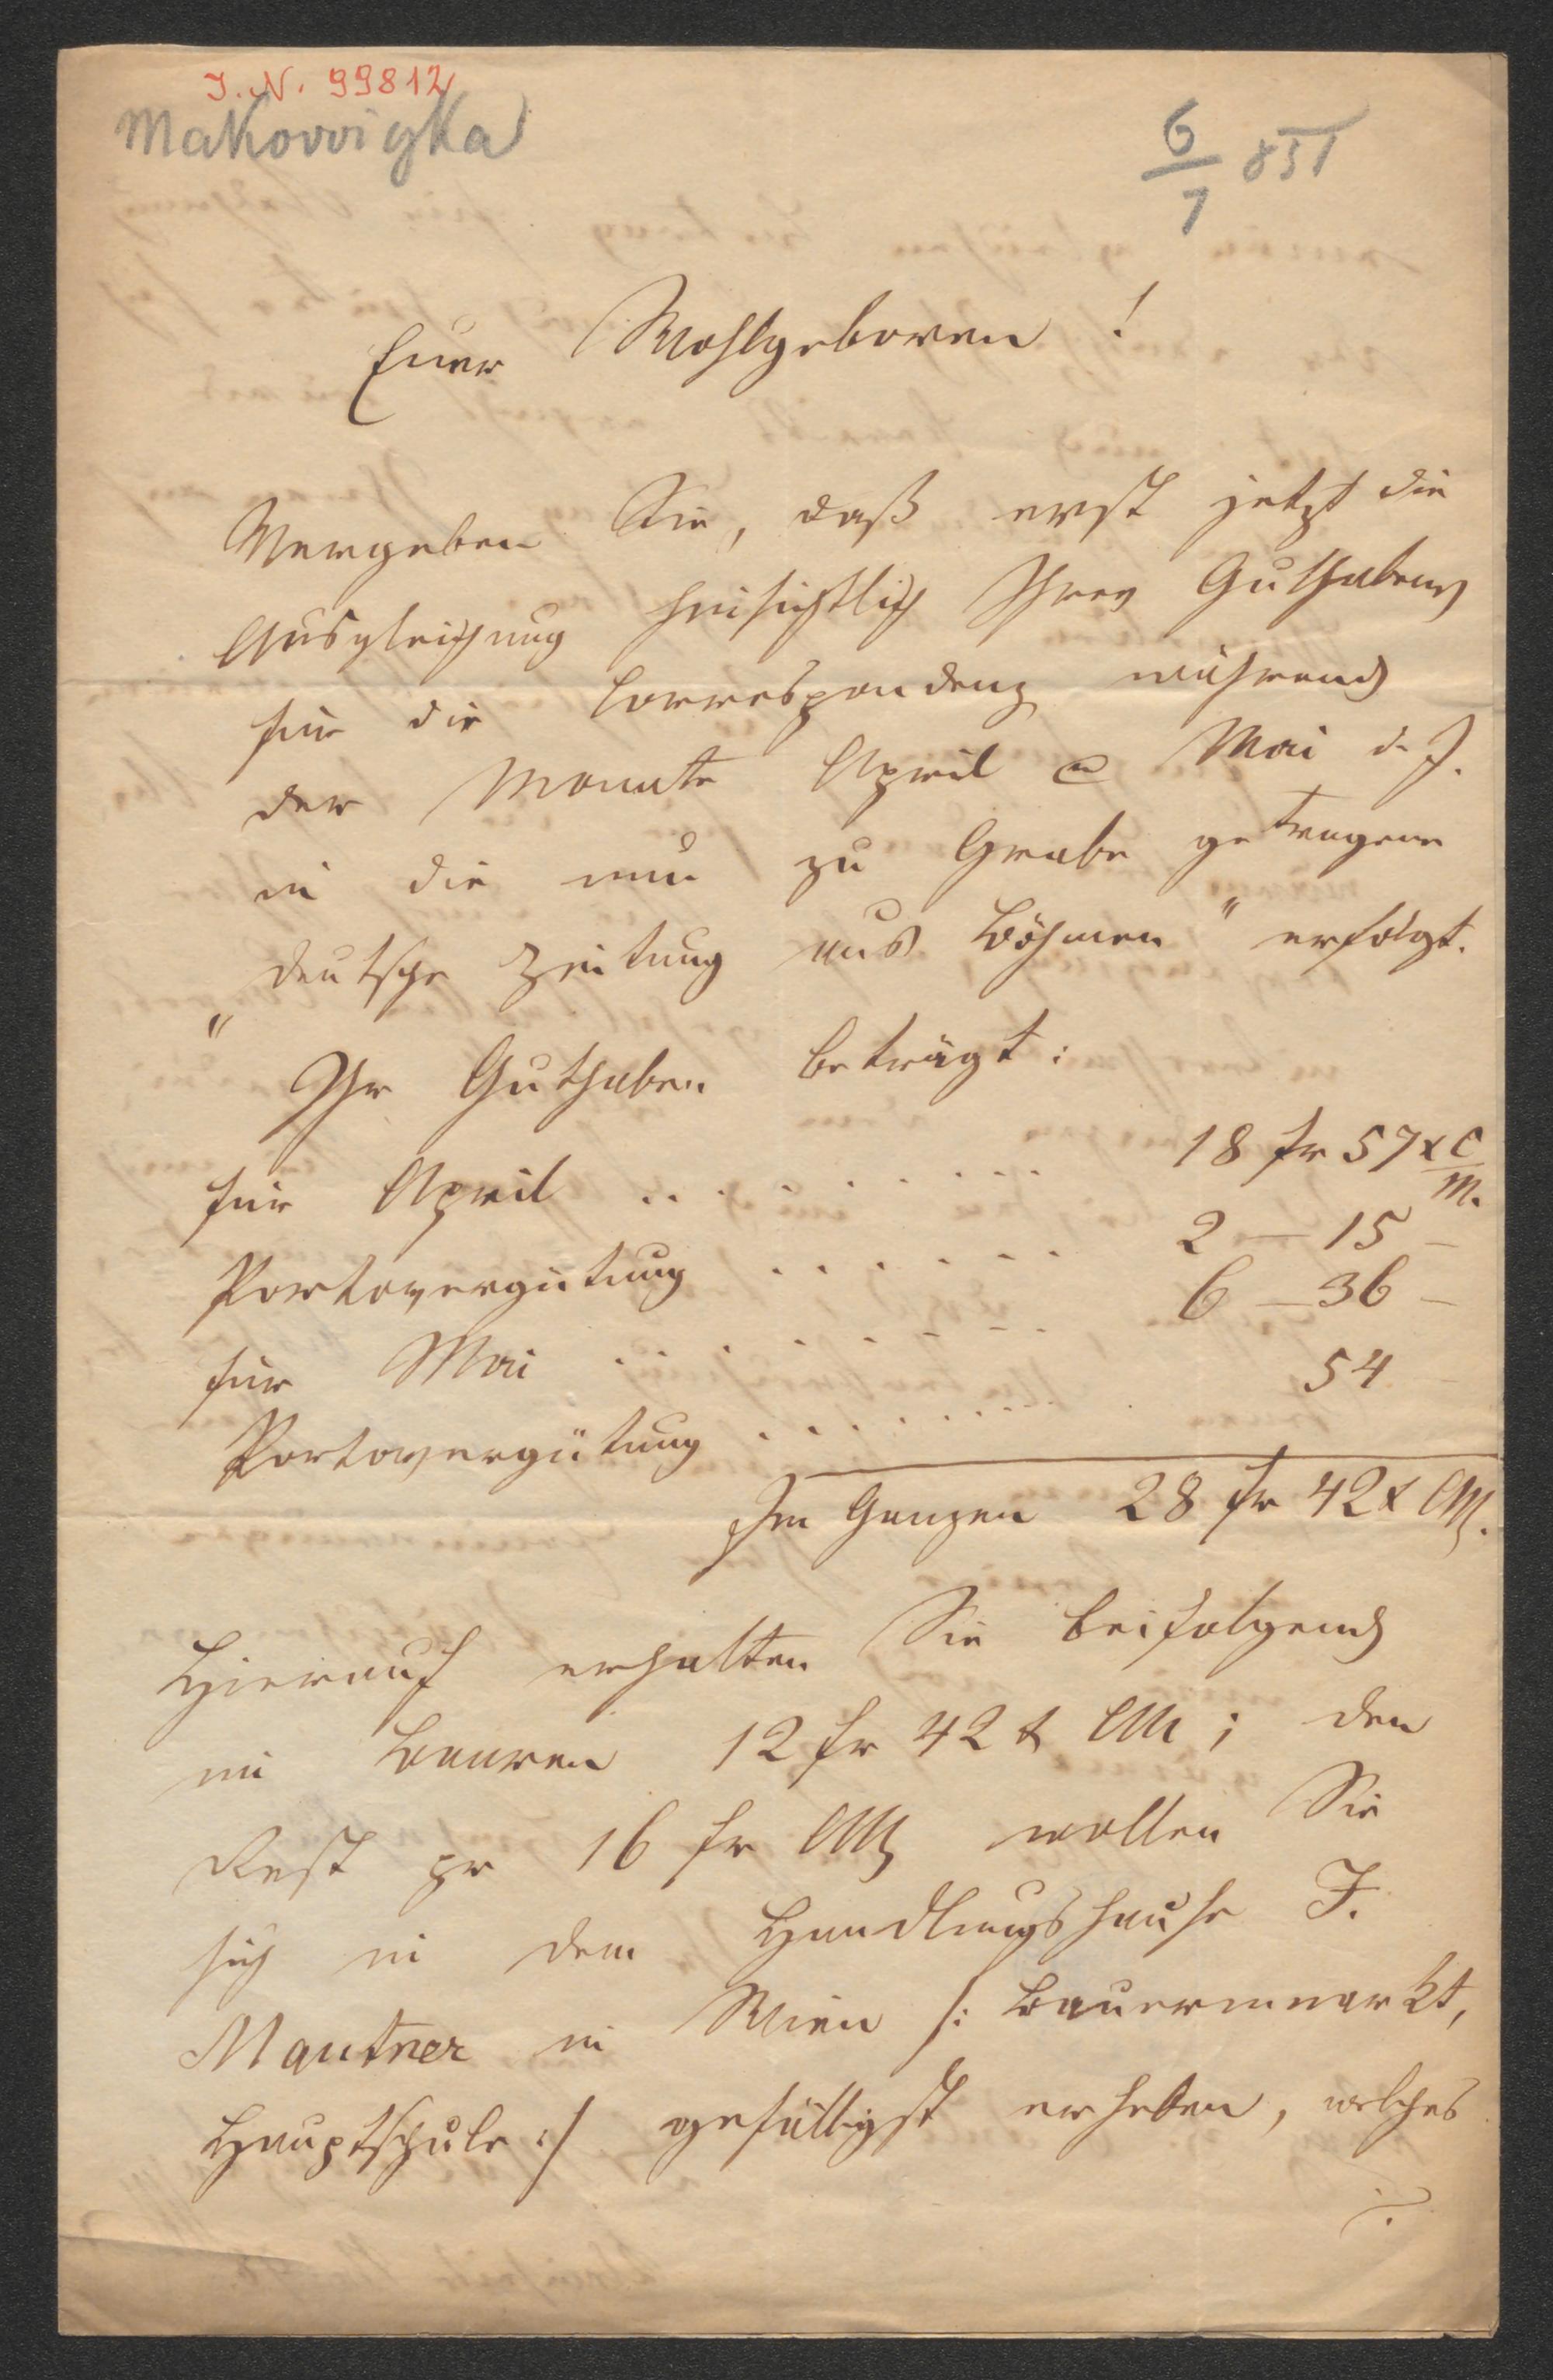 J. N. 99812
Makowigka
6/7 851
Euer Wohlgeboren!
Vergeben Sie, daß erst jetzt die
Ausgleichung hinsichtlich Ihres Guthabens
für die Correspondenz während
der Monate April & Mai d. J.
in die nun zu Grabe getragene
„Deutsche Zeitung aus Böhmen“ erfolgt.
Ihr Guthaben beträgt:
für April . . . . . . . . . 18 fr 57 x C/M.
Portovergütung . . . . . . 2 — 15 —
für Mai . . . . . . . . 6 — 36 —
Portovergütung . . . . . . . . . 54 —
Im Ganzen 28 fr 42 x CM.
Hierauf erhalten Sie beifolgend
in Baarem 12 fr 42 x CM; den
Rest pr 16 fr CM wollen Sie
sich in dem Handlungshause J.
Mautner in Wien /: Bauernmarkt,
Hauptschule :/ gefälligst erheben, welches